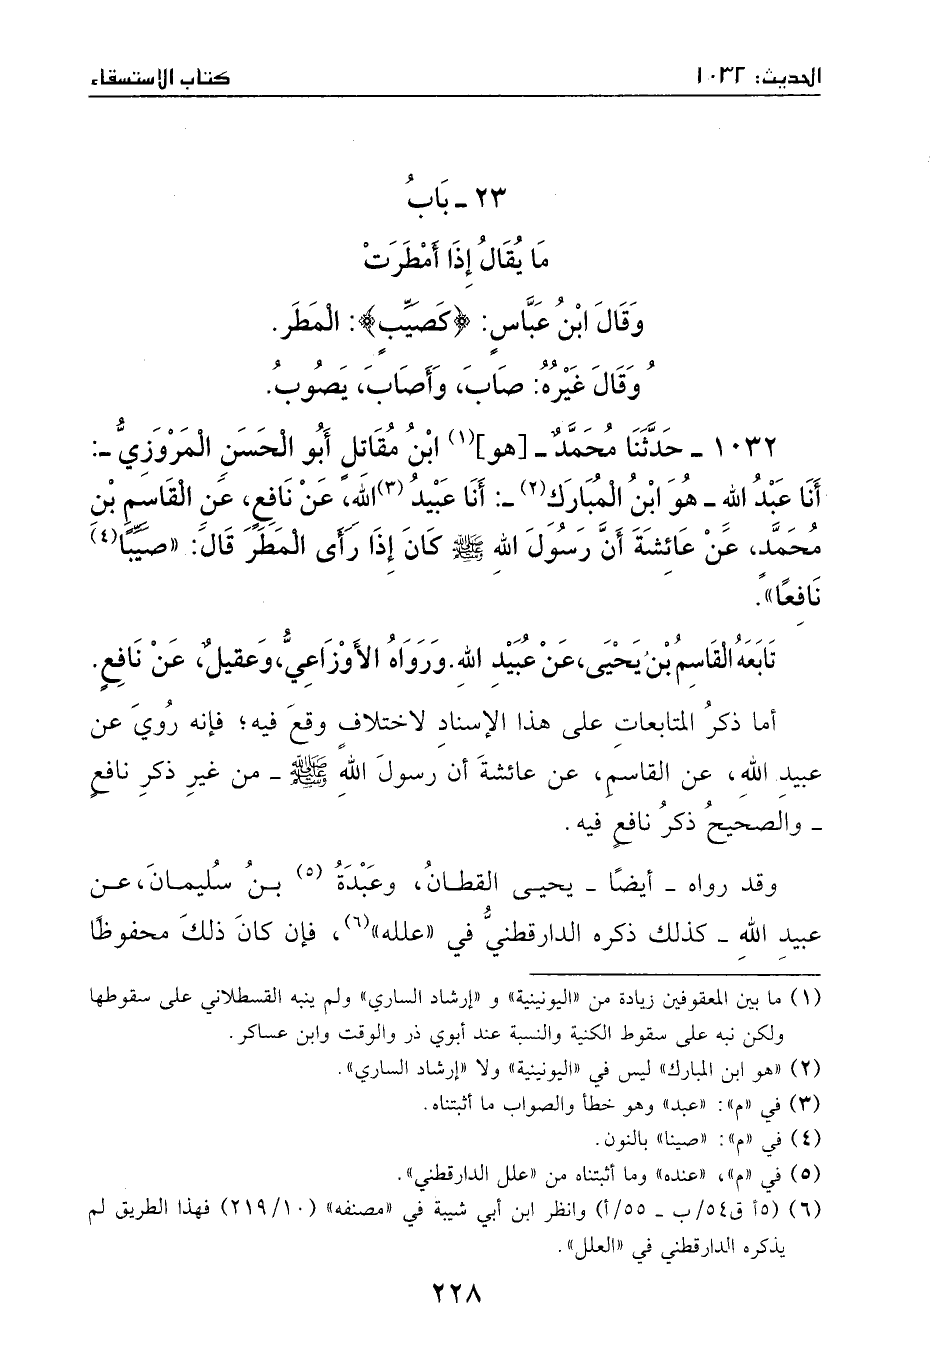 الحديث: ١٠٣٢
كتاب الاستسقاء
٢٣ ـ بَابُ
مَا يُقَالُ إِذَا أَمْطَرَتْ
وَقَالَ ابْنُ عَبَّاسٍ: ﴿كَصَيِّبٍ﴾: الْمَطَرِ.
وَقَالَ غَيْرُهُ: صَابَ، وَأَصَابَ، يَصُوبُ.
١٠٣٢ ـ حَدَّثَنَا مُحَمَّدٌ ـ [هو](١) ابْنُ مُقَاتِلٍ أَبُو الْحَسَنِ الْمَرْوَزِيُّ ـ:
أَنَا عَبْدُ الله ـ هُوَ ابْنُ الْمُبَارَكِ(٢) ـ: أَنَا عَبِيدُ (٣)الله، عَنْ نَافِعٍ، عَنِ الْقَاسِمِ بْنِ
مُحَمَّدٍ، عَنْ عَائِشَةَ أَنَّ رَسُولَ اللهِ ﷺ كَانَ إِذَا رَأَى الْمَطَرَ قَالَ: «صَيِّبًا(٤)
نَافِعًا».
تَابَعَهُ الْقَاسِمُ بْنُ يَحْيَى، عَنْ عُبَيْدِ اللهِ. وَرَوَاهُ الأَوْزَاعِيُّ، وَعَقِيلٌ، عَنْ نَافِعٍ.
أما ذكرُ المتابعاتِ على هذا الإسنادِ لاختلافٍ وقعَ فيه؛ فإنه رُويَ عن
عبيدِ اللهِ، عن القاسمِ، عن عائشةَ أن رسولَ اللهِ ﷺ ـ من غيرِ ذكرِ نافعٍ
ـ والصحيحُ ذكرُ نافعٍ فيه.
وقد رواه ـ أيضًا ـ يحيى القطانُ، وعَبْدَةُ (٥) بنُ سُليمانَ، عن
عبيدِ اللهِ ـ كذلك ذكره الدارقطنيُّ في «علله»(٦)، فإن كانَ ذلكَ محفوظًا
(١) ما بين المعقوفين زيادة من «اليونينية» و «إرشاد الساري» ولم ينبه القسطلاني على سقوطها
ولكن نبه على سقوط الكنية والنسبة عند أبوي ذر والوقت وابن عساكر.
(٢) «هو ابن المبارك» ليس في «اليونينية» ولا «إرشاد الساري».
(٣) في «م»: «عبد» وهو خطأ والصواب ما أثبتناه.
(٤) في «م»: «صينا» بالنون.
(٥) في «م»، «عنده» وما أثبتناه من «علل الدارقطني».
(٦) (٥أ ق٥٤/ب ـ ٥٥/أ) وانظر ابن أبي شيبة في «مصنفه» (٢١٩/١٠) فهذا الطريق لم
يذكره الدارقطني في «العلل».
٢٢٨